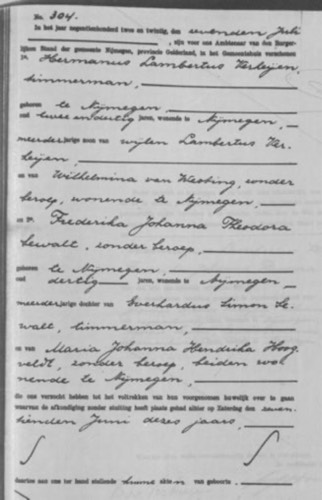 No. 304.
In het jaar negentienhonderd twee en twintig, den zevenden Juli
, zijn voor ons Ambtenaar van den Burger-
lijken Stand der gemeente Nijmegen, provincie Gelderland, in het Gemeentehuis verschenen
Hermanus Lambertus Verleijen,
timmerman,
geboren te Nijmegen,
oud twee en dertig jaren, wonende te Nijmegen,
meerderjarige zoon van wijlen Lambertus Ver-
leijen,
en van Wilhelmina van Westing, zonder
beroep, wonende te Nijmegen,
en Frederika Johanna Theodora
Sewalt, zonder beroep,
geboren te Nijmegen,
oud dertig jaren, wonende te Nijmegen
meerderjarige dochter van Everhardus Simon Se-
walt, timmerman,
en van Maria Johanna Hendrika Hoog-
veldt, zonder beroep, beiden wo-
nende te Nijmegen,
die ons verzocht hebben tot het voltrekken van hun voorgenomen huwelijk over te gaan
waarvan de afkondiging zonder stuiting heeft plaats gehad alhier op Zaterdag den zeven-
tienden Juni dezes jaars,
daartoe aan ons ter hand stellende hunne akten van geboorte,